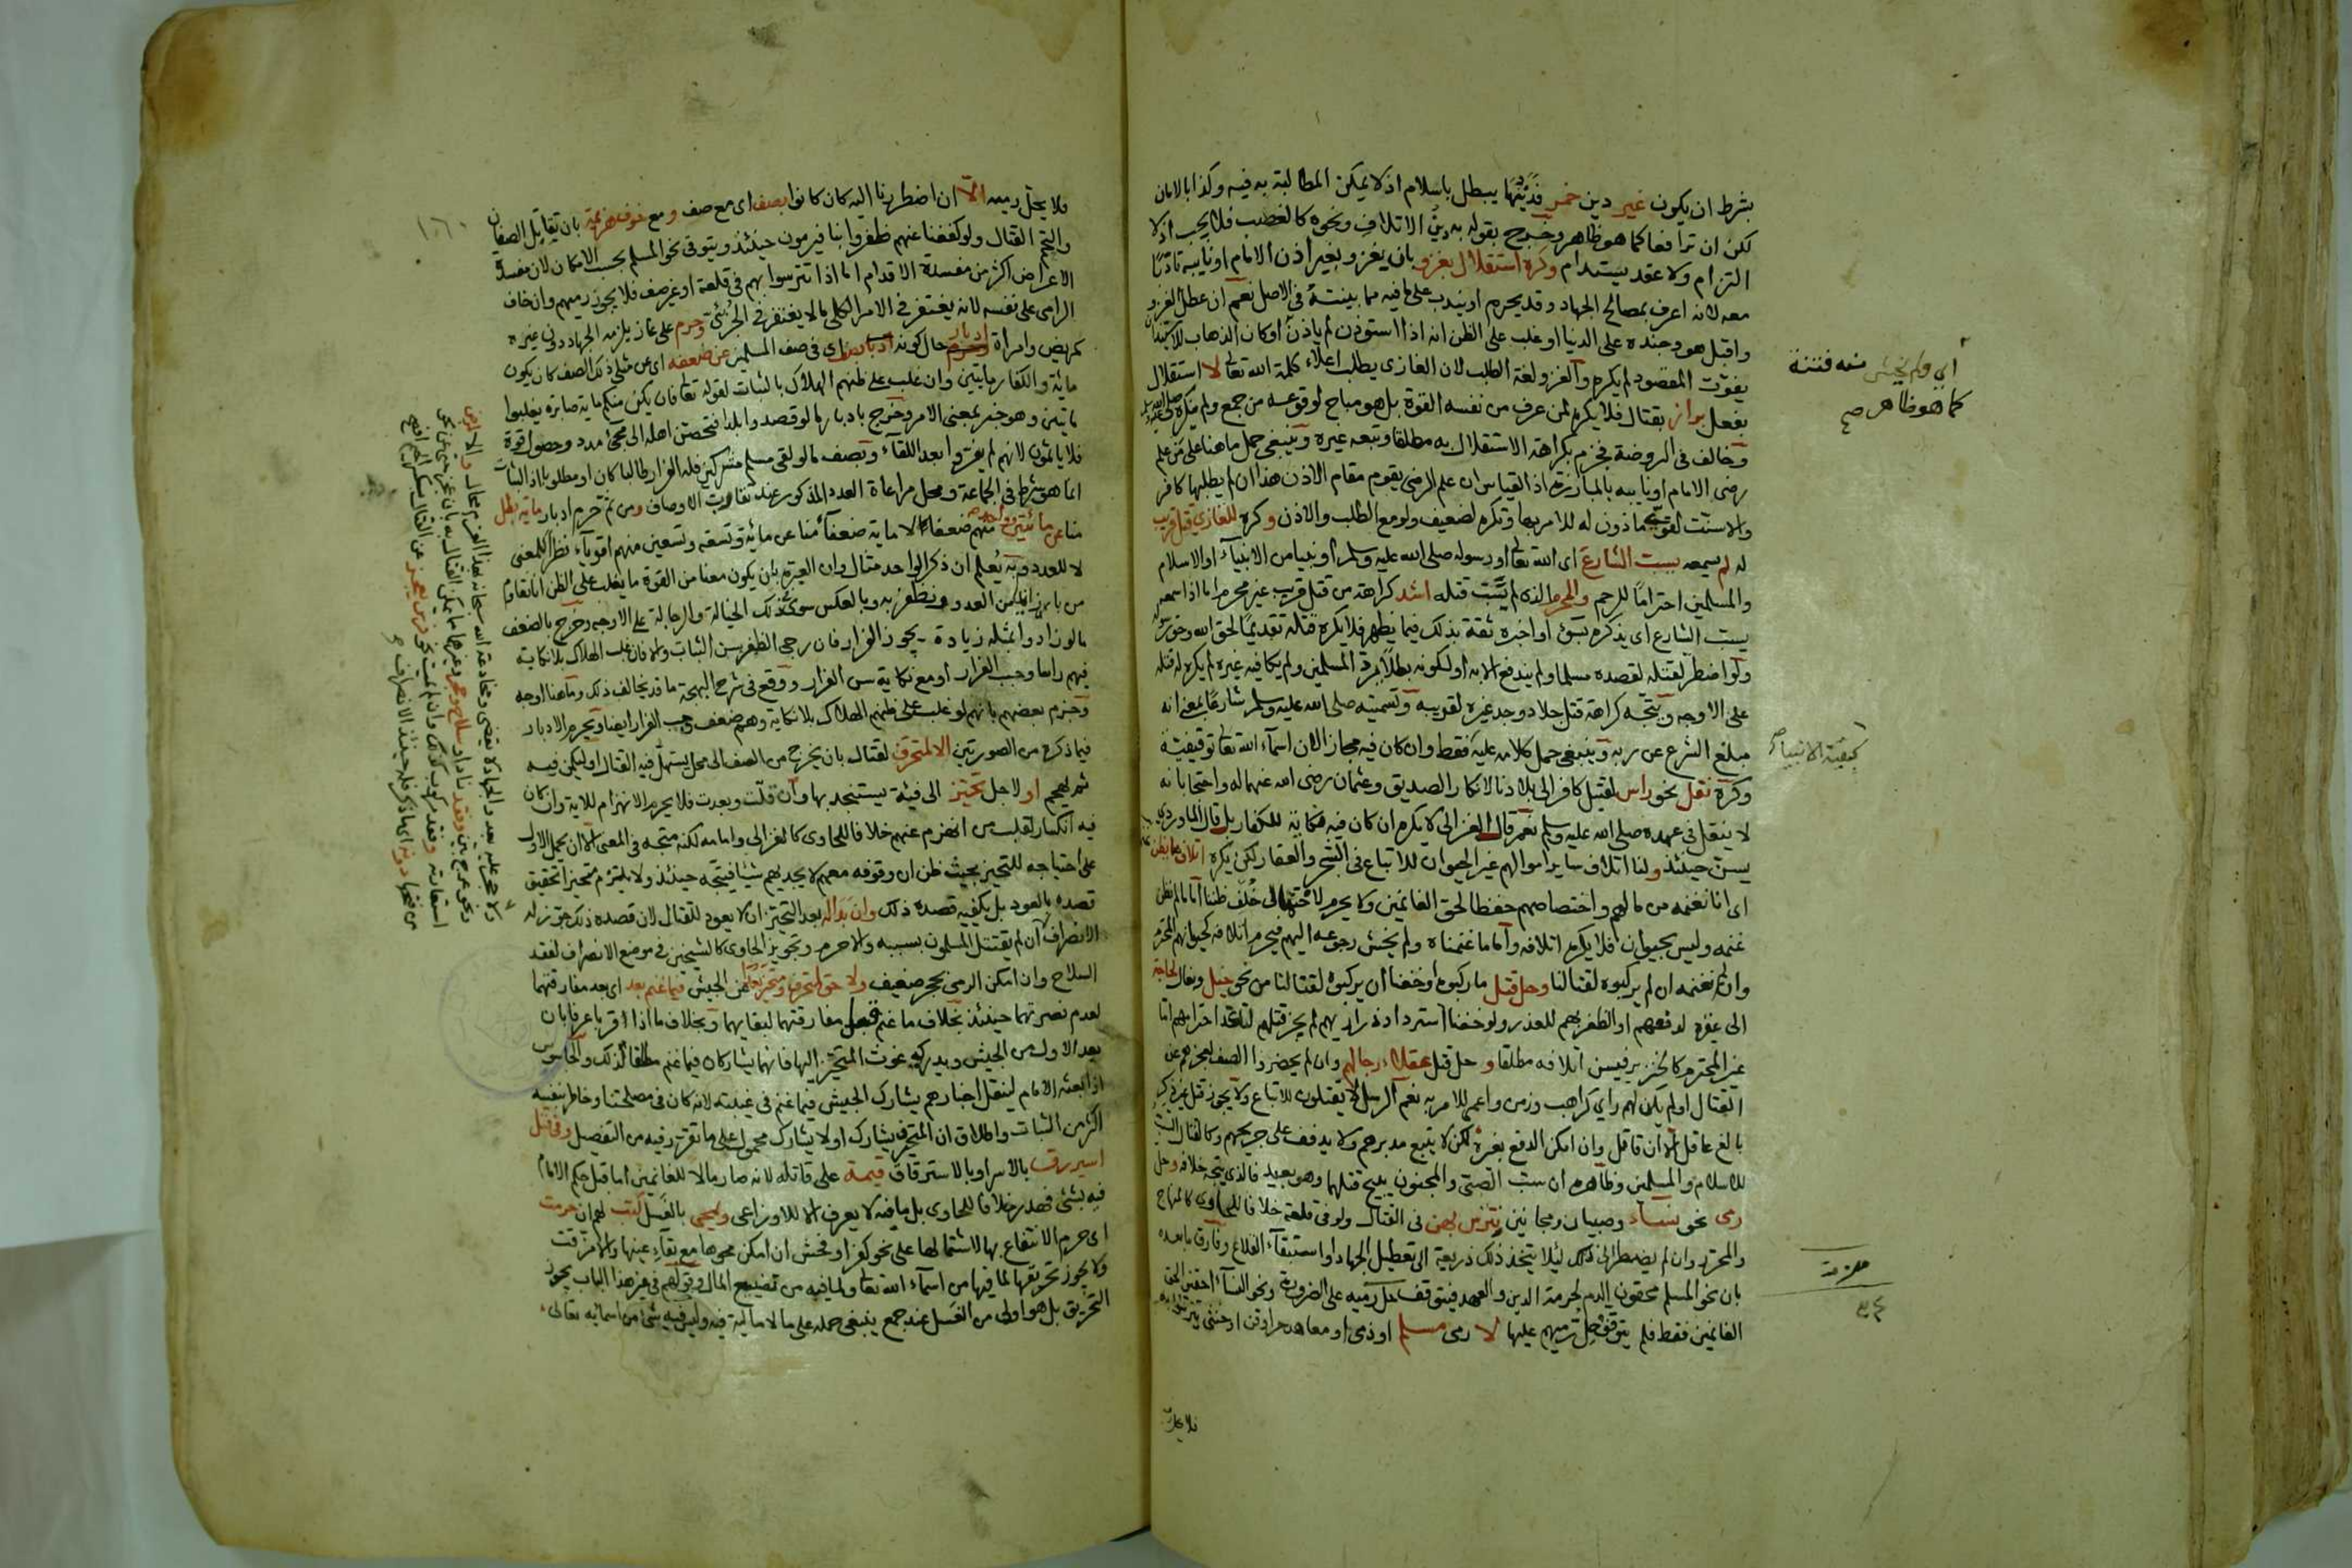 بشرط ان يكون غير دين خمر فديتها يبطل باسلام اذ لا يمكن المطالبة به فيه وكذا بالامان
لكن ان ترافعا كما هو ظاهر وخرج بقوله به دين الاتلاف ونحوه كالغصب فلا يجب اذ لا
التزام ولا عقد يستدام وكره استقلال بغزو بان يغزو بغير اذن الامام او نايبه تادبا
معه لانه اعرف بمصالح الجهاد وقد يحرم او يندب على ما فيه مما بينته في الاصل نعم ان عطل الغزو
واقبل هو وجنده على الدنيا او غلب على الظن انه اذا استوذن لم ياذن او كان الذهاب للاستيذان
يفوت المقصود لم يكره والغزو لغة الطلب لان الغازى يطلب اعلاء كلمة الله تعالى لا استقلال
بفعل براز بقتال فلا يكره لمن عرف من نفسه القوة بل هو مباح لوقوعه من جمع ولم ينكره
وخالف في الروضة فجزم بكراهة الاستقلال به مطلقا وتبعه غيره وينبغي حمل ما هنا على من علم
رضى الامام او نايبه بالمبارزة اذ القياس ان علم الرضى يقوم مقام الاذن هذا ان لم يطلبها كافر
والا سنت لقوى ماذون له للامر بها وتكره لضعيف ولو مع الطلب والاذن وكره للغازى قتل قريب
له لم يسمعه يسب الشارع اى الله تعالى او رسوله صلى الله عليه وسلم او نبيا من الانبياء او الاسلام
والمسلمين احتراما للرحم والمحرم الذى لم يسب قتله اشد كراهة من قتل قريب غير محرم اما اذا سمعه
يسب الشارع اى يذكره بسوء او اخبره ثقة بذلك فيما يظهر فلا يكره قتله تقديما لحق الله وحق رسوله
ولو اضطر لقتله لقصده مسلما ولم يندفع الا به او لكونه بطلا لم يكافيه غيره لم يكره له قتله
على الاوجه ويتجه كراهة قتل جلاد وجد غيره لقريبه وتسميته صلى الله عليه وسلم شارعا بمعنى انه
مبلغ الشرع عن ربه وينبغي حمل كلامه عليه فقط وان كان فيه مجاز الان اسماء الله تعالى توقيفية
وكره نقل نحو راس لقتيل كافر الى بلادنا لانكار الصديق وعثمان رضى الله عنهما له واحتجا بانه
لا ينقل في عهده صلى الله عليه وسلم نعم قال الغزالى لا يكره ان كان فيه نكاية للكفار بل قال الماوردي
يسن حينئذ ولنا اتلاف ساير اموالهم غير الحيوان للاتباع فى الشجر والعقار لكن يكره اتلاف ما يظن
اى انا نغنمه من مالهم واختصاصهم حفظا لحق الغانمين ولا يحرم
غنمه وليس بحيوان فلا يكره اتلافه واما ما غنمناه ولم يخش رجوعه اليهم فيحرم اتلافه كحيوانهم المحترم
وان لم نغنمه ان لم يركبوه لقتالنا وحل قتل ما ركبوه او خفنا ان يركبوه لقتالنا من نحو خيل وبغال لحاجة
الى عقره لدفعهم او الظفر بهم للعذر ولو خفنا استرداد ذراريهم لم يجز قتلهم لتاكد احترامهم اما
غير المحترم كالخنزير فيسن اتلافه مطلقا وحل قتل عقلاء رجالهم وان لم يحضروا الصف لعجزهم عن
القتال او لم يكن لهم راى كراهب وزمن واعمى للامر به نعم الرسل لا يقتلون للاتباع ولا يجوز قتل غير ذكر
بالغ عاقل الا ان قاتل وان امكن الدفع بغيره لكن لا يتبع مدبرهم ولا يدفف على جريحهم وكالقتال السب
للاسلام والمسلمين وظاهره ان سب الصبى والمجنون يبيح قتلهما وهو بعيد فالذى يتجه خلافه وحل
رمى نحو نساء وصبيان ومجانين تترس بهن فى القتال ولو فى قلعة خلافا للحاوى كالمنهاج
والمحرر وان لم يضطر الى ذلك ليلا يتخذ ذلك ذريعة الى تعطيل الجهاد او استبقاء القلاع وفارق ما بعده
بان نحو المسلم محقون الدم لحرمة الدين والعهد فيتوقف حل رميه على الضرورة ونحو النساء حقن لحق
الغانمين فقط فلم يتوقف حل رميهم عليها لا رمى مسلم او ذمى او معاهد حر او قن او خنثى
فلا يحل
اى ولم يخش منه فتنة
كما هو ظاهر صح
كبقية الانبياء صح
فلا يحل رميه الا ان اضطررنا اليه كان كانوا بصف اى مع صف ومع خوف هزيمة بان تقابل الصفان
والتحم القتال ولو كففنا عنهم ظفروا بنا فيرمون حينئذ ويتوقى نحو المسلم بحسب الامكان لان مفسدة
الاعراض اكثر من مفسدة الاقدام اما اذا تترسوا بهم فى قلعة او غير صف فلا يجوز رميهم وان خاف
الرامى على نفسه لانه يغتفر فى الامر الكلى ما لا يغتفر فى الجزئى وحرم على من يلزمه الجهاد دون غيره
كمريض وامراة ادبار حال كونه اى فى صف المسلمين عن ضعفه اى عن مثلى ذلك الصف كان يكون
مائة والكفار مايتين وان غلب على ظنهم الهلاك بالثبات لقوله تعالى فان يكن منكم ماية صابرة يغلبوا
مايتين وهو خبر بمعنى الامر وخرج بادبار ما لو قصدوا بلدا فتحصن اهله الى مجئ مدد وحصول قوة
فلا ياثمون لانهم لم يفروا بعد اللقاء وبصف ما لو لقى مسلم مشركين فله الفرار طالبا كان او مطلوبا اذ الثبات
انما هو شرط فى الجماعة ومحل مراعاة العدد المذكور عند تقارب الاوصاف ومن ثم حرم ادبار ماية بطل
منا عن مائتين وواحد منهم ضعفا لا ماية ضعفاء منا عن مائة وتسعة وتسعين منهم اقوياء نظرا للمعنى
لا للعدد وبه يعلم ان ذكر الواحد مثال وان العبرة بان يكون معنا من القوة ما يغلب على الظن انا نقاوم
من بازائنا من العدو ونظفر به وبالعكس سوى ذلك الخيالة والرجالة على الاوجه وخرج بالضعف
ما لو زادوا بمثله زيادة يجوز الفرار فان رجى الظفر سن الثبات والا فان غلب الهلاك بلا نكاية
فيهم راسا وجب الفرار او مع نكاية سن الفرار ووقع فى شرح البهجة ما قد يخالف ذلك وما هنا اوجه
وجزم بعضهم بانهم لو غلب على ظنهم الهلاك بلا نكاية وهم ضعف وجب الفرار ايضا ويحرم الادبار
فيما ذكره من الصورتين الا لمتحرف لقتال بان يخرج من الصف الى محل يسهل فيه القتال او ليكمن فيه
ثم يهجم او لاجل تحيز الى فيئة يستنجد بها وان قلت وبعدت فلا يحرم الانهزام للاية وان كان
فيه انكسار لقلب من انهزم عنهم خلافا للحاوى كالغزالى وامامه لكنه متجه فى المعنى الا ان يحمل الاول
على احتياجه للتحيز بحيث ظن ان وقوفه معهم لا يجديهم شيئا فيتجه حينئذ ولا يلتزم متحيز تحقيق
قصده بالعود بل يكفيه قصده ذلك وان بدا له بعد التحيز ان لا يعود للقتال لان قصده ذلك جوز له
الانصراف ان لم يقتتل المسلمون بسببه والا حرم وتجويز الحاوى كالشيخين فى موضع الانصراف لفقد
السلاح وان امكن الرمى بحجر ضعيف ولا حق لمتحرف ومتحيز بعدا عن الجيش فيما غنم بعد اى بعد مفارقتهما
لعدم نصرتهما حينئذ بخلاف ما غنم قبل مفارقتهما لبقايهما وبخلاف ما اذا قربا عرفا بان
يعد الاول من الجيش ويدركه غوث المتحيز اليها فانهما يشاركان فيما غنم مطلقا لذلك والجاسوس
اذا بعثه الامام لينقل اخبارهم يشارك الجيش فيما غنم فى غيبته لانه كان فى مصلحتنا وخاطر بنفسه
اكثر من الثبات واطلاق ان المتحرف يشارك او لا يشارك محمول على ما تقرر فيه من التفصيل وفى قتل
اسير رق بالاسر او بالاسترقاق قيمة على قاتله لانه صار مالا للغانمين اما قبل حكم الامام
فيه بشئ فهدر خلافا للحاوى بل ما فيه لا يعرف الا للاوزاعى وتمحى بالغسل كتب لهم ان حرمت
اى حرم الانتفاع بها لاشتمالها على نحو كفر او فحش ان امكن محوها مع بقاء عينها والا مزقت
ولا يجوز تحريقها لما فيها من اسماء الله تعالى ولما فيه من تضييع المال وقولهم فى غير هذا الباب يجوز
التحريق بل هو اولى من الغسل عند جمع ينبغى حمله على ما لا مالية فيه وليس فيه شئ من اسمائه تعالى
١٦٠